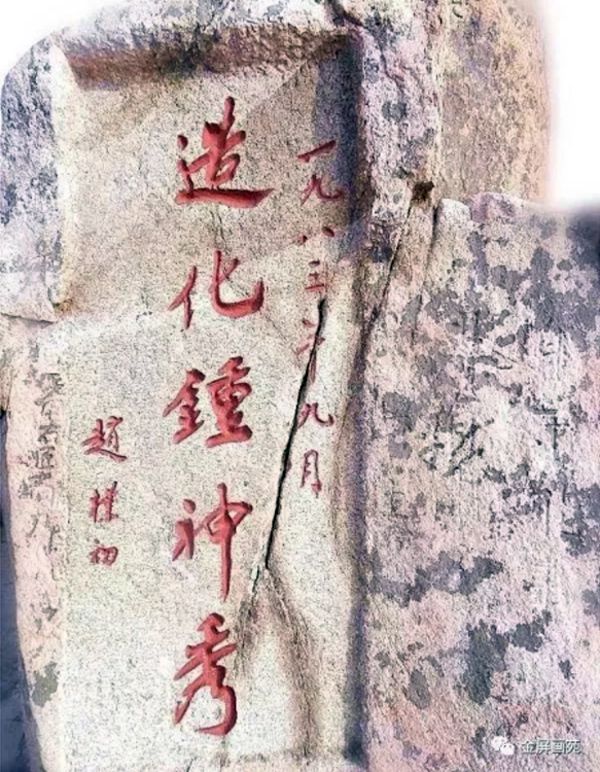 一九八三年九月
造化鍾神秀
趙樸初
金屏画苑